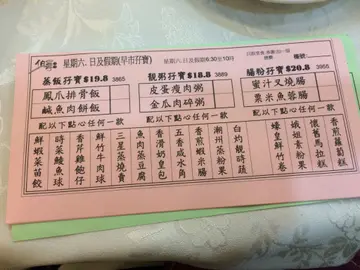 星期六,日及假期(早市孖寶)
星期六、日及假期6:30至10時
蒸飯孖寶$19.8 3865
鳳爪排骨飯
鹹魚肉餅飯
靚粥孖寶$18.8 3889
皮蛋瘦肉粥
金瓜肉碎粥
腸粉孖寶$20.8 3855
蜜汁叉燒腸
粟米魚蓉腸
配以下點心任何一款
配以下點心任何一款
配以下點心任何一款
鮮蝦菜苗餃
時菜鯪魚球
香芹雞飽仔
鮮竹牛肉球
三星蒸燒賣
魚肉蒸豆腐
香滑奶皇包
五香咸水角
香煎蝦米腸
潮州蒸粉果
白灼靚時蔬
蠔皇鮮竹卷
瑤柱素粉果
懷舊馬拉糕
香煎蘿蔔糕